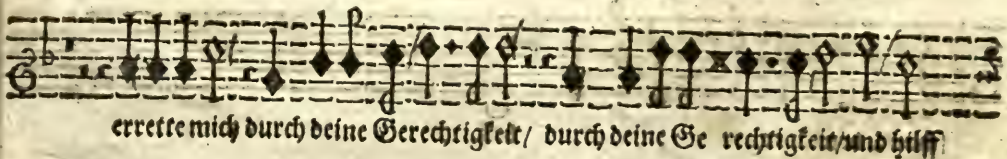 errette mich durch deine Gerechtigkeit/ durch deine Ge rechtigkeit/und hilff